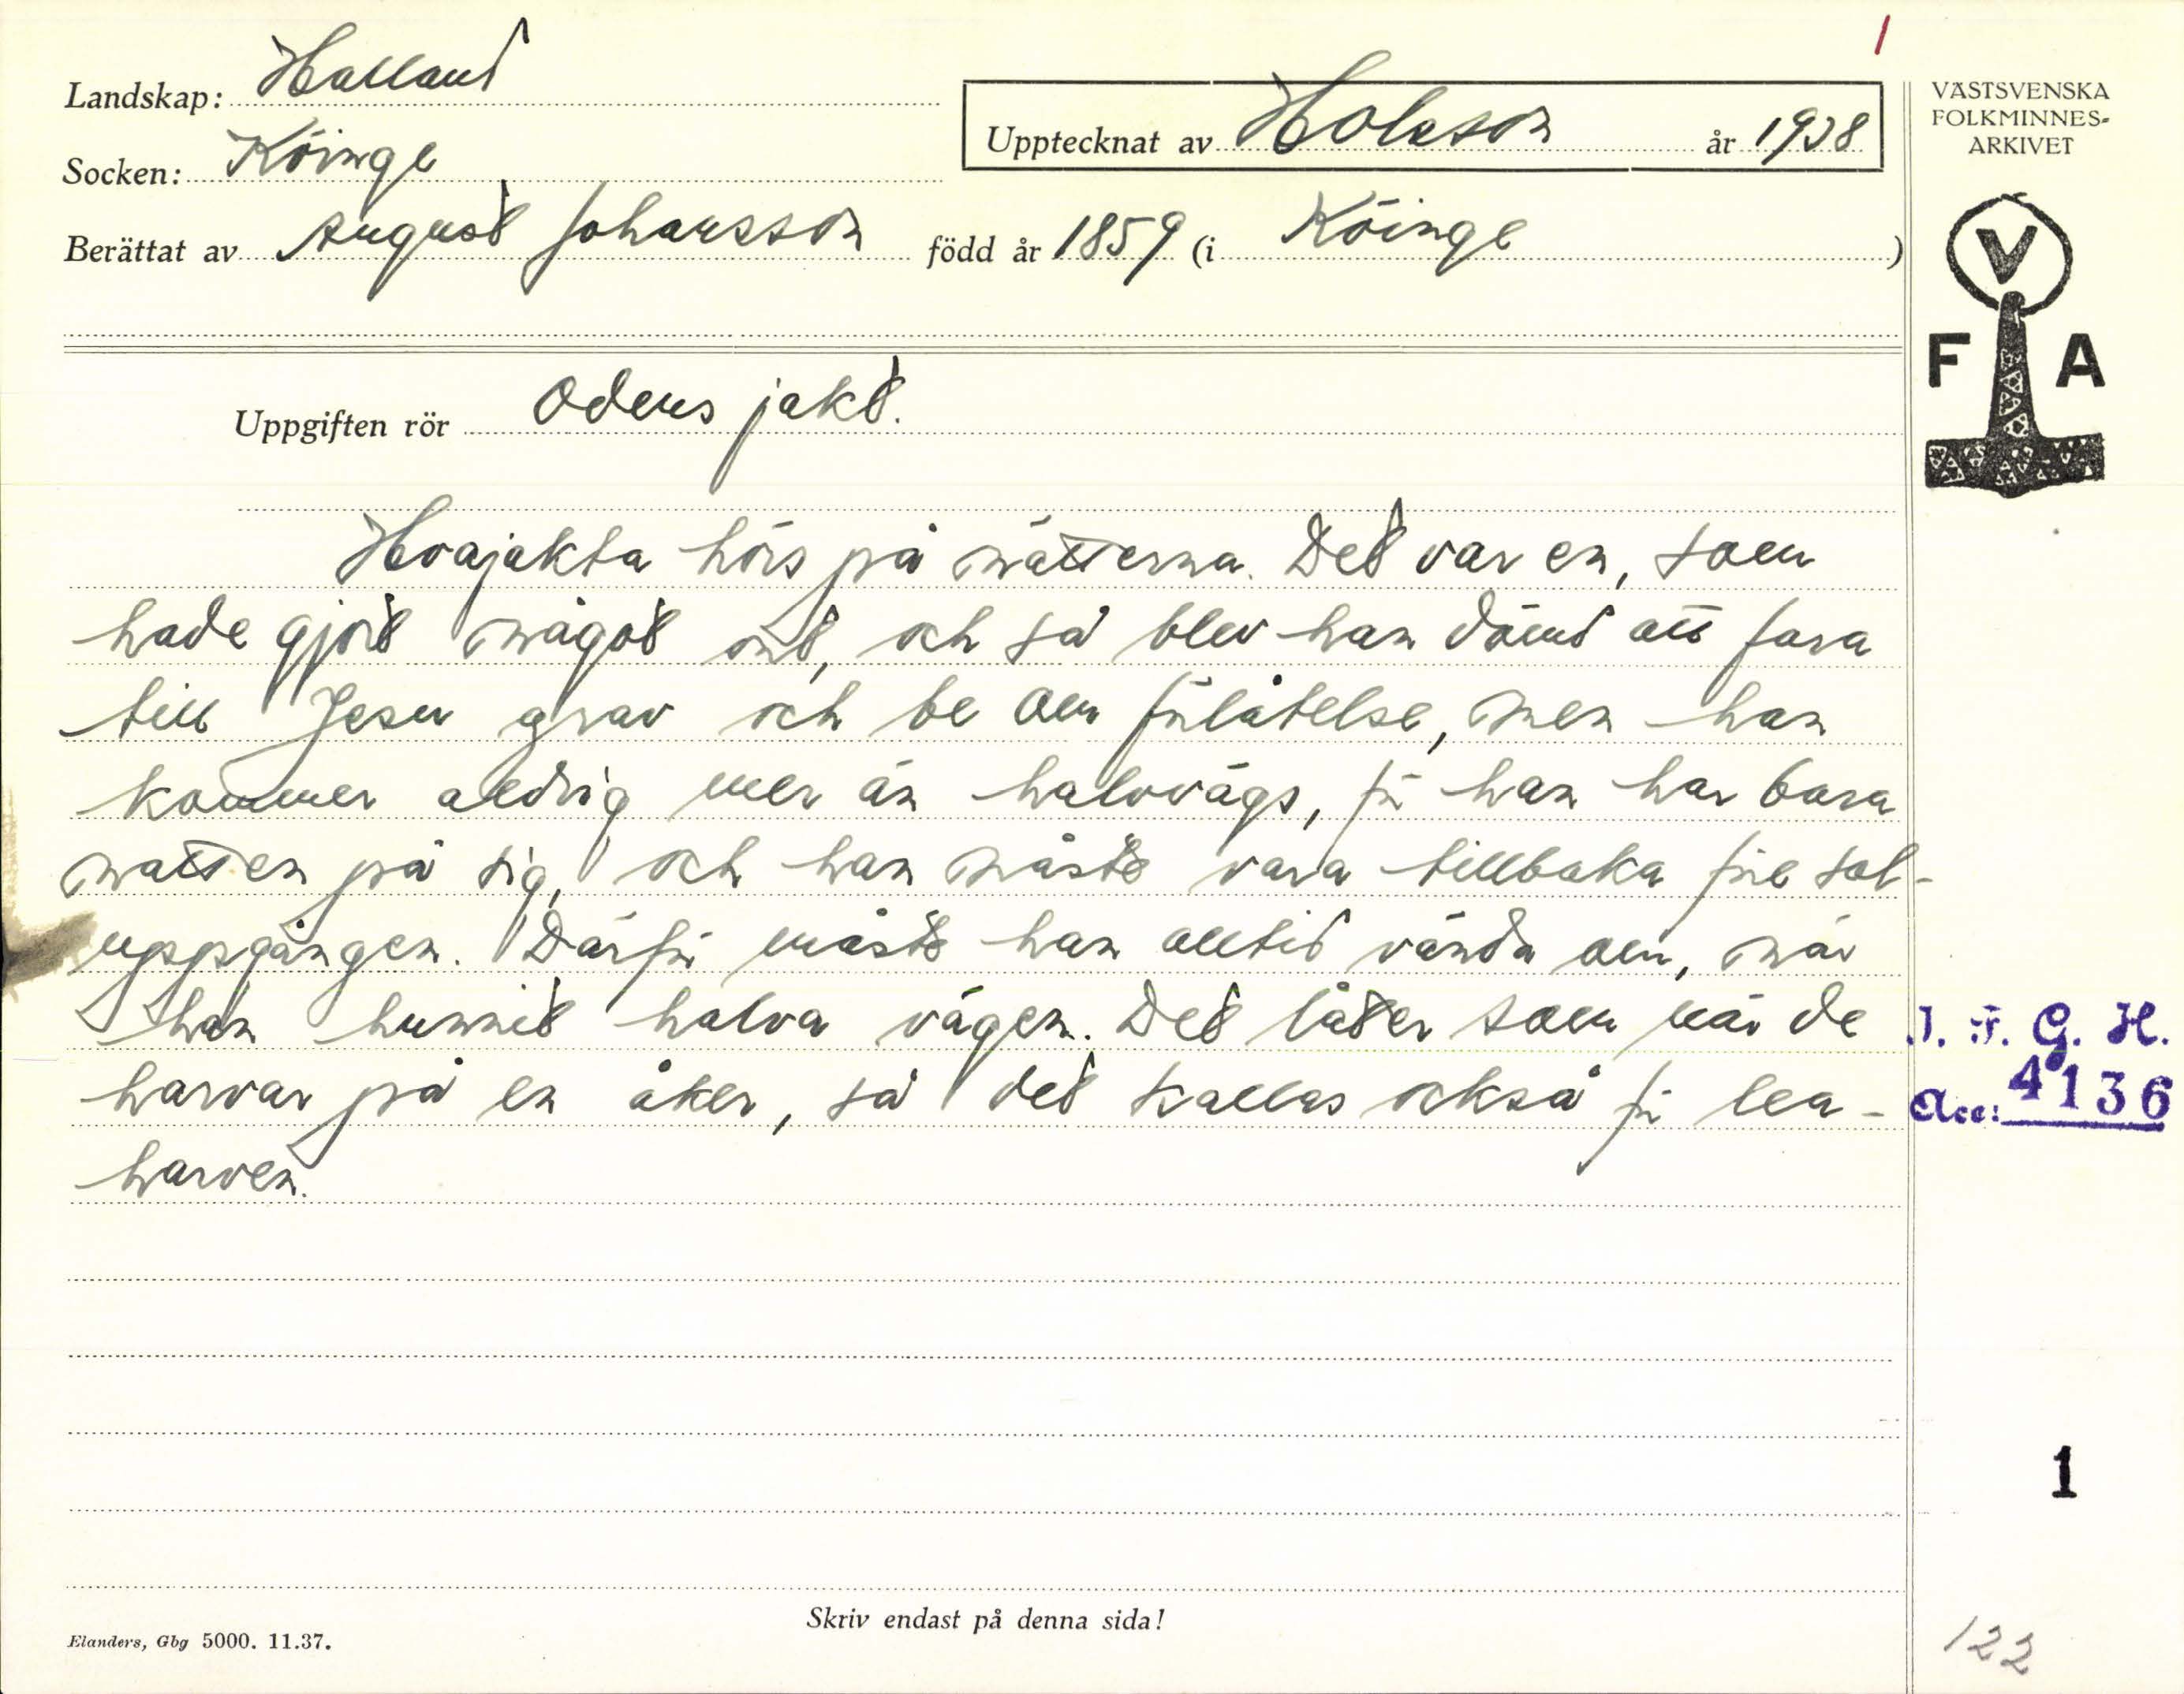 1
Landskap: Halland
Upptecknat av Holeson år 1938
VÄSTSVENSKA
FOLKMINNES-
ARKIVET
Socken: Köinge
Berättat av August Johansson född år 1859 (i Köinge )
V
F A
Uppgiften rör Odens jakt.
Hoajakta hörs på nätterna. Det var en, som
hade gjort något ont, och så blev han dömd att fara
till Jesu grav och be om förlåtelse, men han
kommer aldrig mer än halvvägs, för han har bara
natten på sig, och han måste vara tillbaka före sol-
uppgången. Därför måste han alltid vända om, när
han hunnit halva vägen. Det låter som när de
harvar på en åker, så det kallas också för lea-
harven.
I. F. G. H.
Acc: 4136
1
Skriv endast på denna sida!
Elanders, Gbg 5000. 11.37.
122